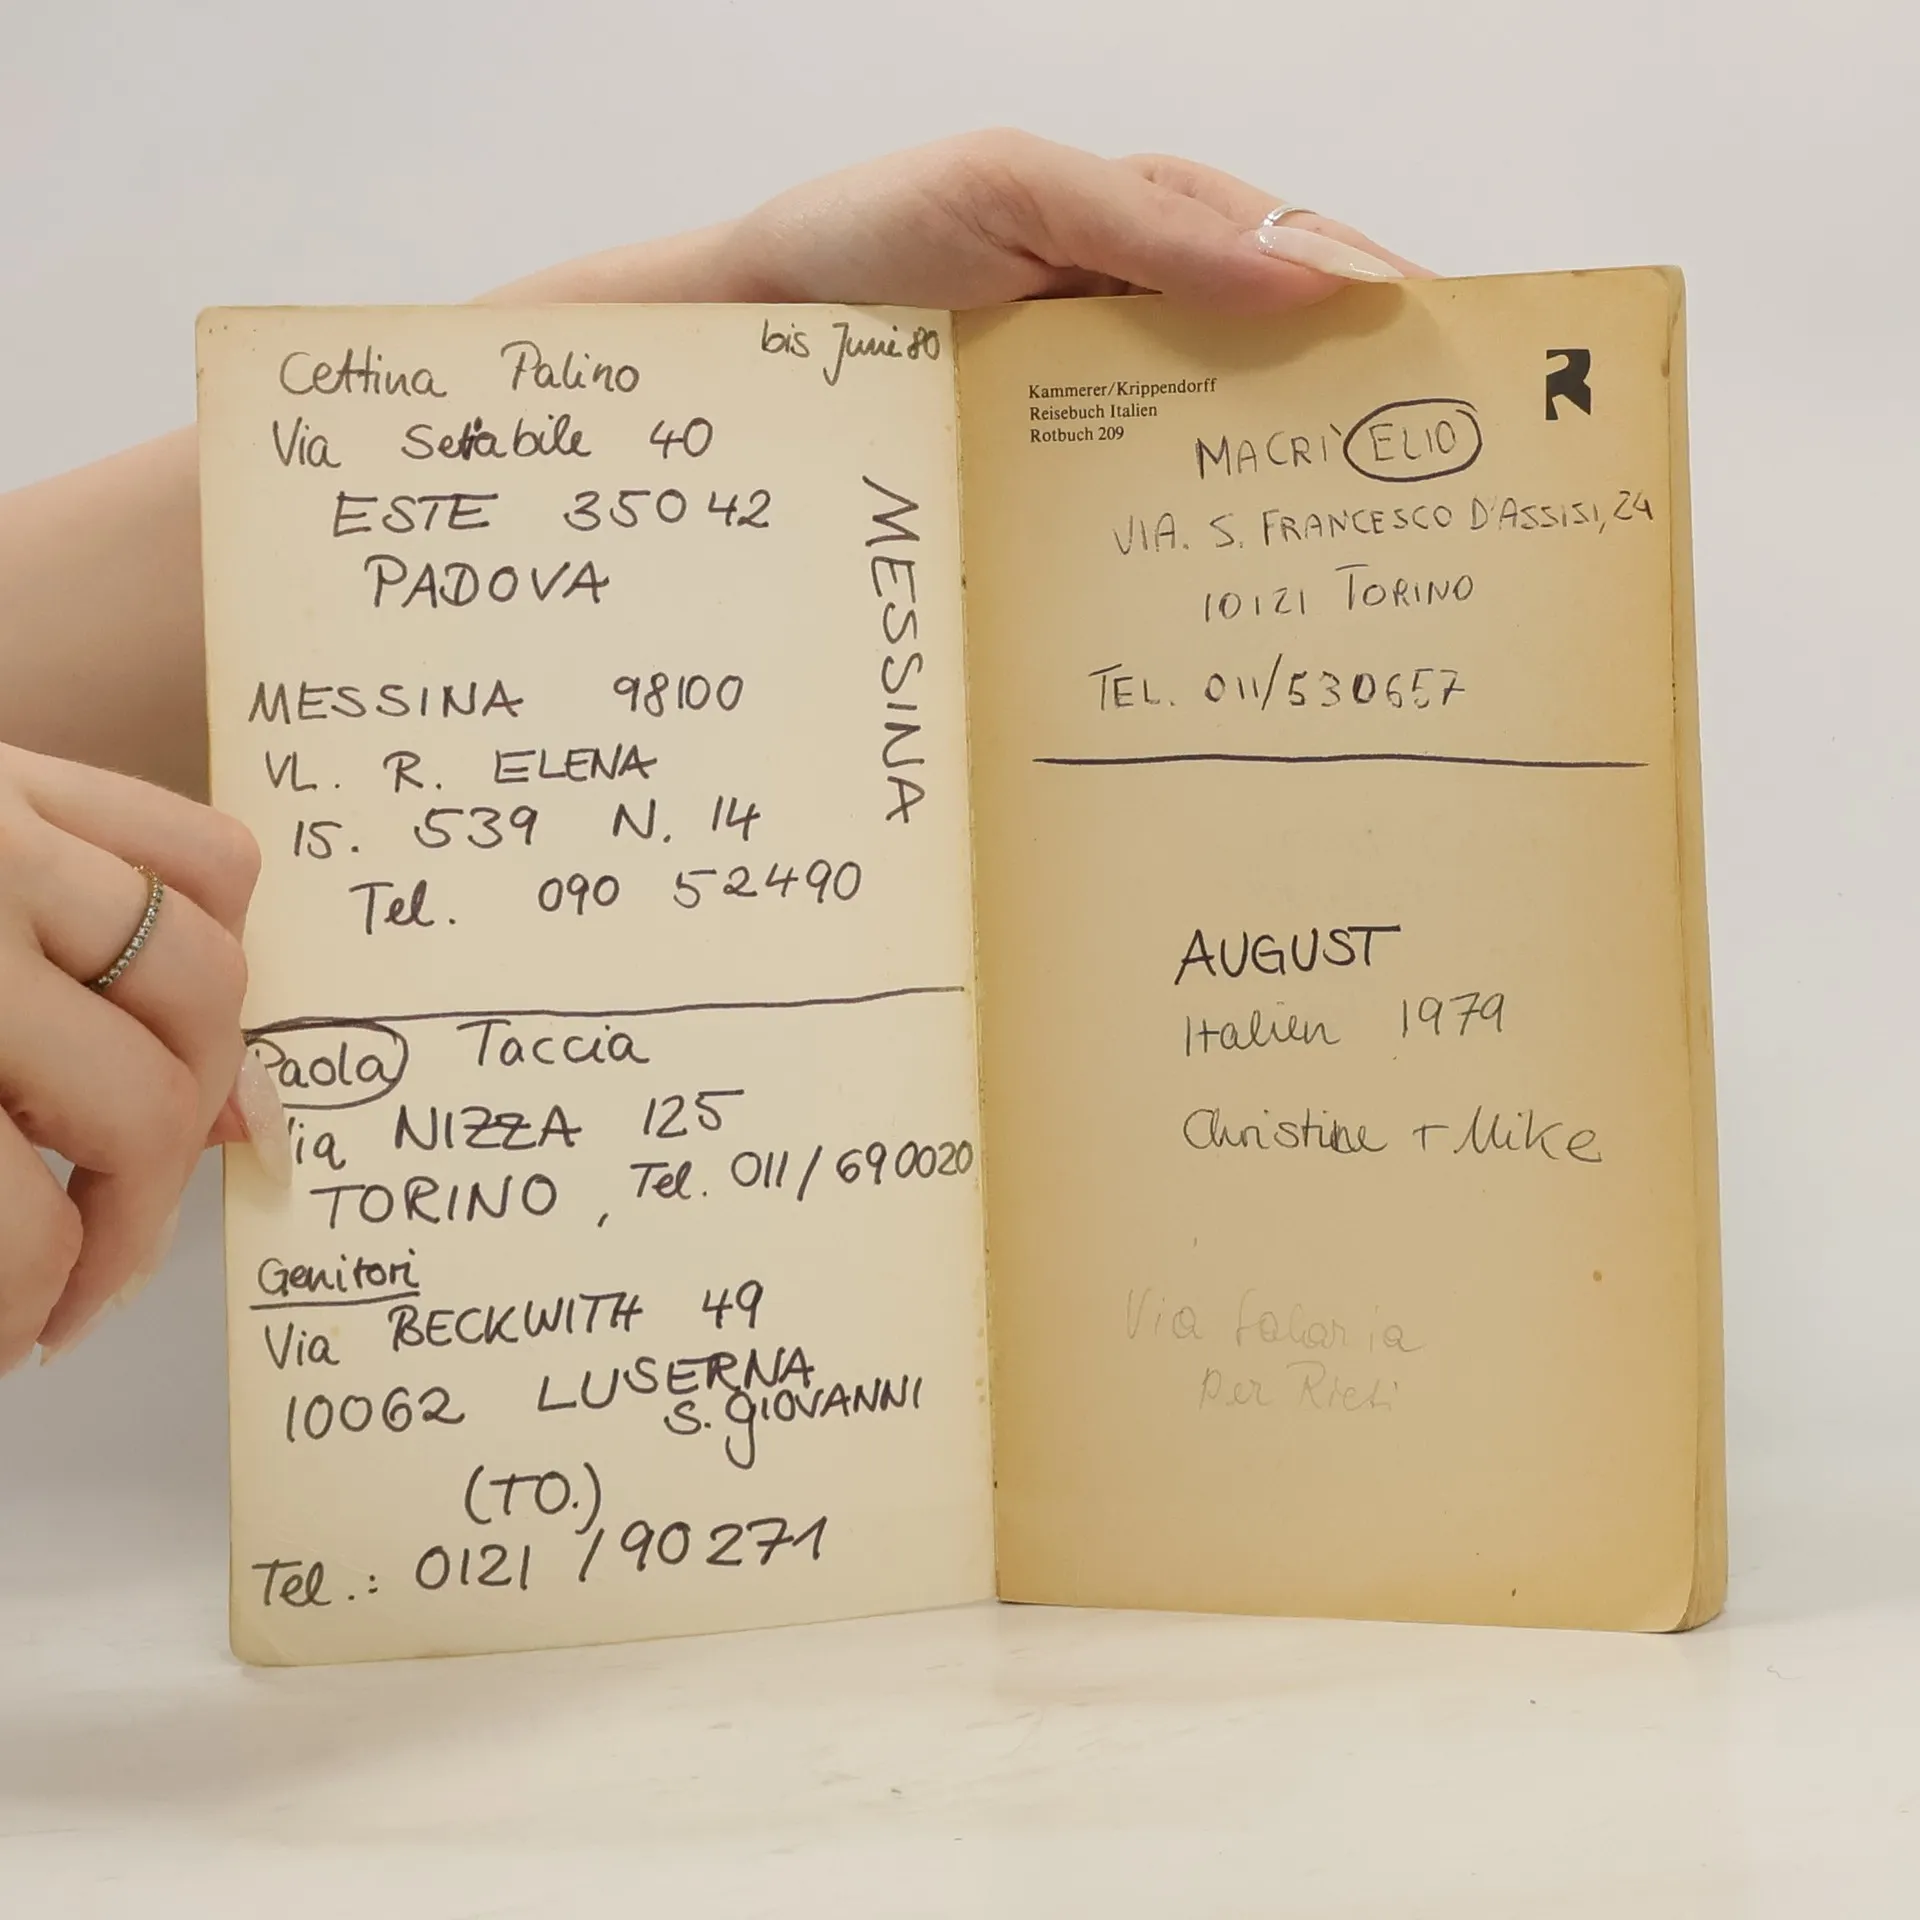 Cettina Palino
bis Juni 80
Via Setabile 40
ESTE 35042
PADOVA
MESSINA
MESSINA 98100
VL. R. ELENA
IS. 539 N. 14
Tel. 090 52490
Paola Taccia
Via NIZZA 125
TORINO, Tel. 011/690020
Genitori
Via BECKWITH 49
10062 LUSERNA
S. GIOVANNI
(TO.)
Tel.: 0121/90271
Kammerer/Krippendorff
Reisebuch Italien
Rotbuch 209
R
MACRI' ELIO
VIA. S. FRANCESCO D'ASSISI, 24
10121 TORINO
TEL. 011/530657
AUGUST
Italien 1979
Christine + Mike
Via Salaria
per Rieti